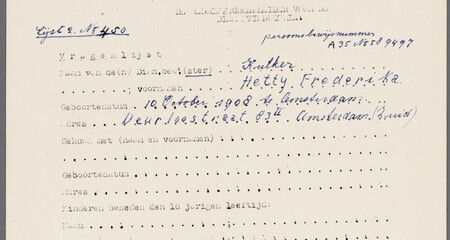 Lijst 2. No 450
persoonsbewijsnummer
A 35 No 559497
Vragenlijst
Naam van de(n) Diam.bew.(ster) Kulker
voornamen Hetty Frederika
Geboortedatum 10 October 1908 te Amsterdam
Adres 83 II Amsterdam (Zuid)
Gehuwd met (naam en voornamen)
Geboortedatum
Adres
Kinderen beneden den 16 jarigen leeftijd:
Naam